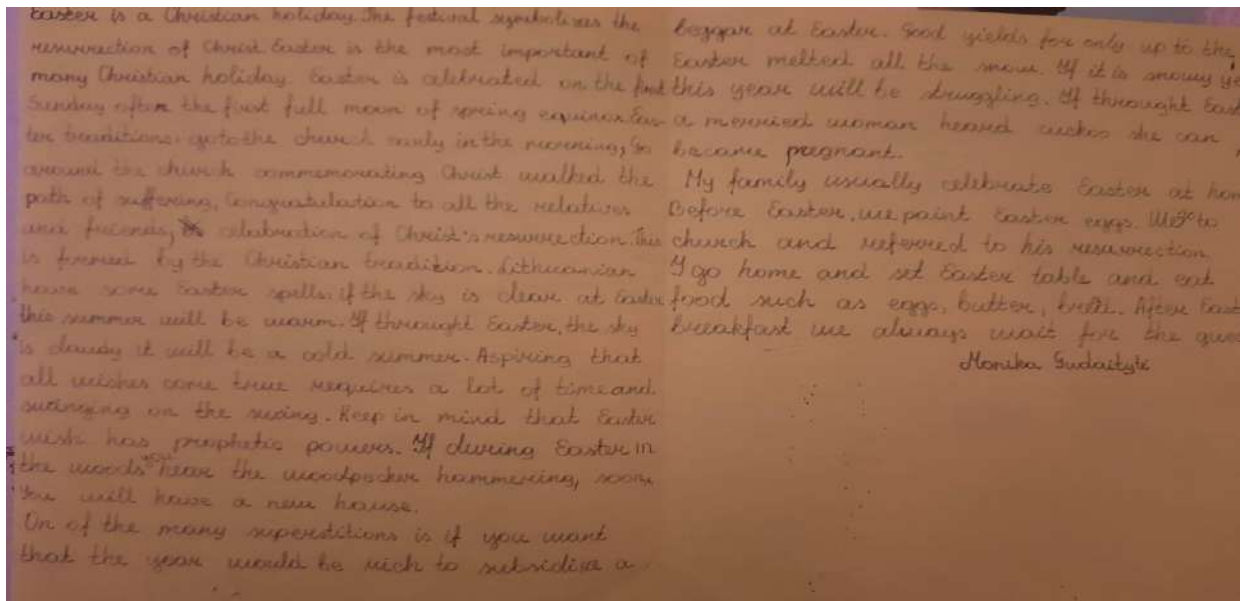 Easter is a Christian holiday. The festival symbolises the
resurrection of Christ Easter is the most important of
many Christian holiday. Easter is celebrated on the first
Sunday after the first full moon of spring equinox. Eas-
ter traditions. go to the church early in the morning, Go
around the church commemorating Christ walked the
path of suffering, Congratulation to all the relatives
and friends, celebration of Christ's resurrection. This
is formed by the Christian tradition. Lithuanian
have some Easter spells. if the sky is clear at Easter
this summer will be warm. If throught Easter, the sky
is cloudy it will be a cold summer. Aspiring that
all wishes come true requires a lot of time and
swinging on the swing. Keep in mind that Easter
wish has prophetic powers. If during Easter in
the woods you hear the woodpecker hammering, soon
You will have a new house.
On of the many superstitions is if you want
that the year would be rich to subsidise a
beggar at Easter. Good yields for only up to the
Easter melted all the snow. If it is snowy
this year will be struggling. If throught
a merried woman heard cuckoo she can
became pregnant.
My family usually celebrate Easter at
Before Easter, we paint Easter eggs. We go to
church and referred to his resurrection
I go home and set Easter table and eat
food such as eggs, butter, After
breakfast we always wait for the
Monika Gudaitytė